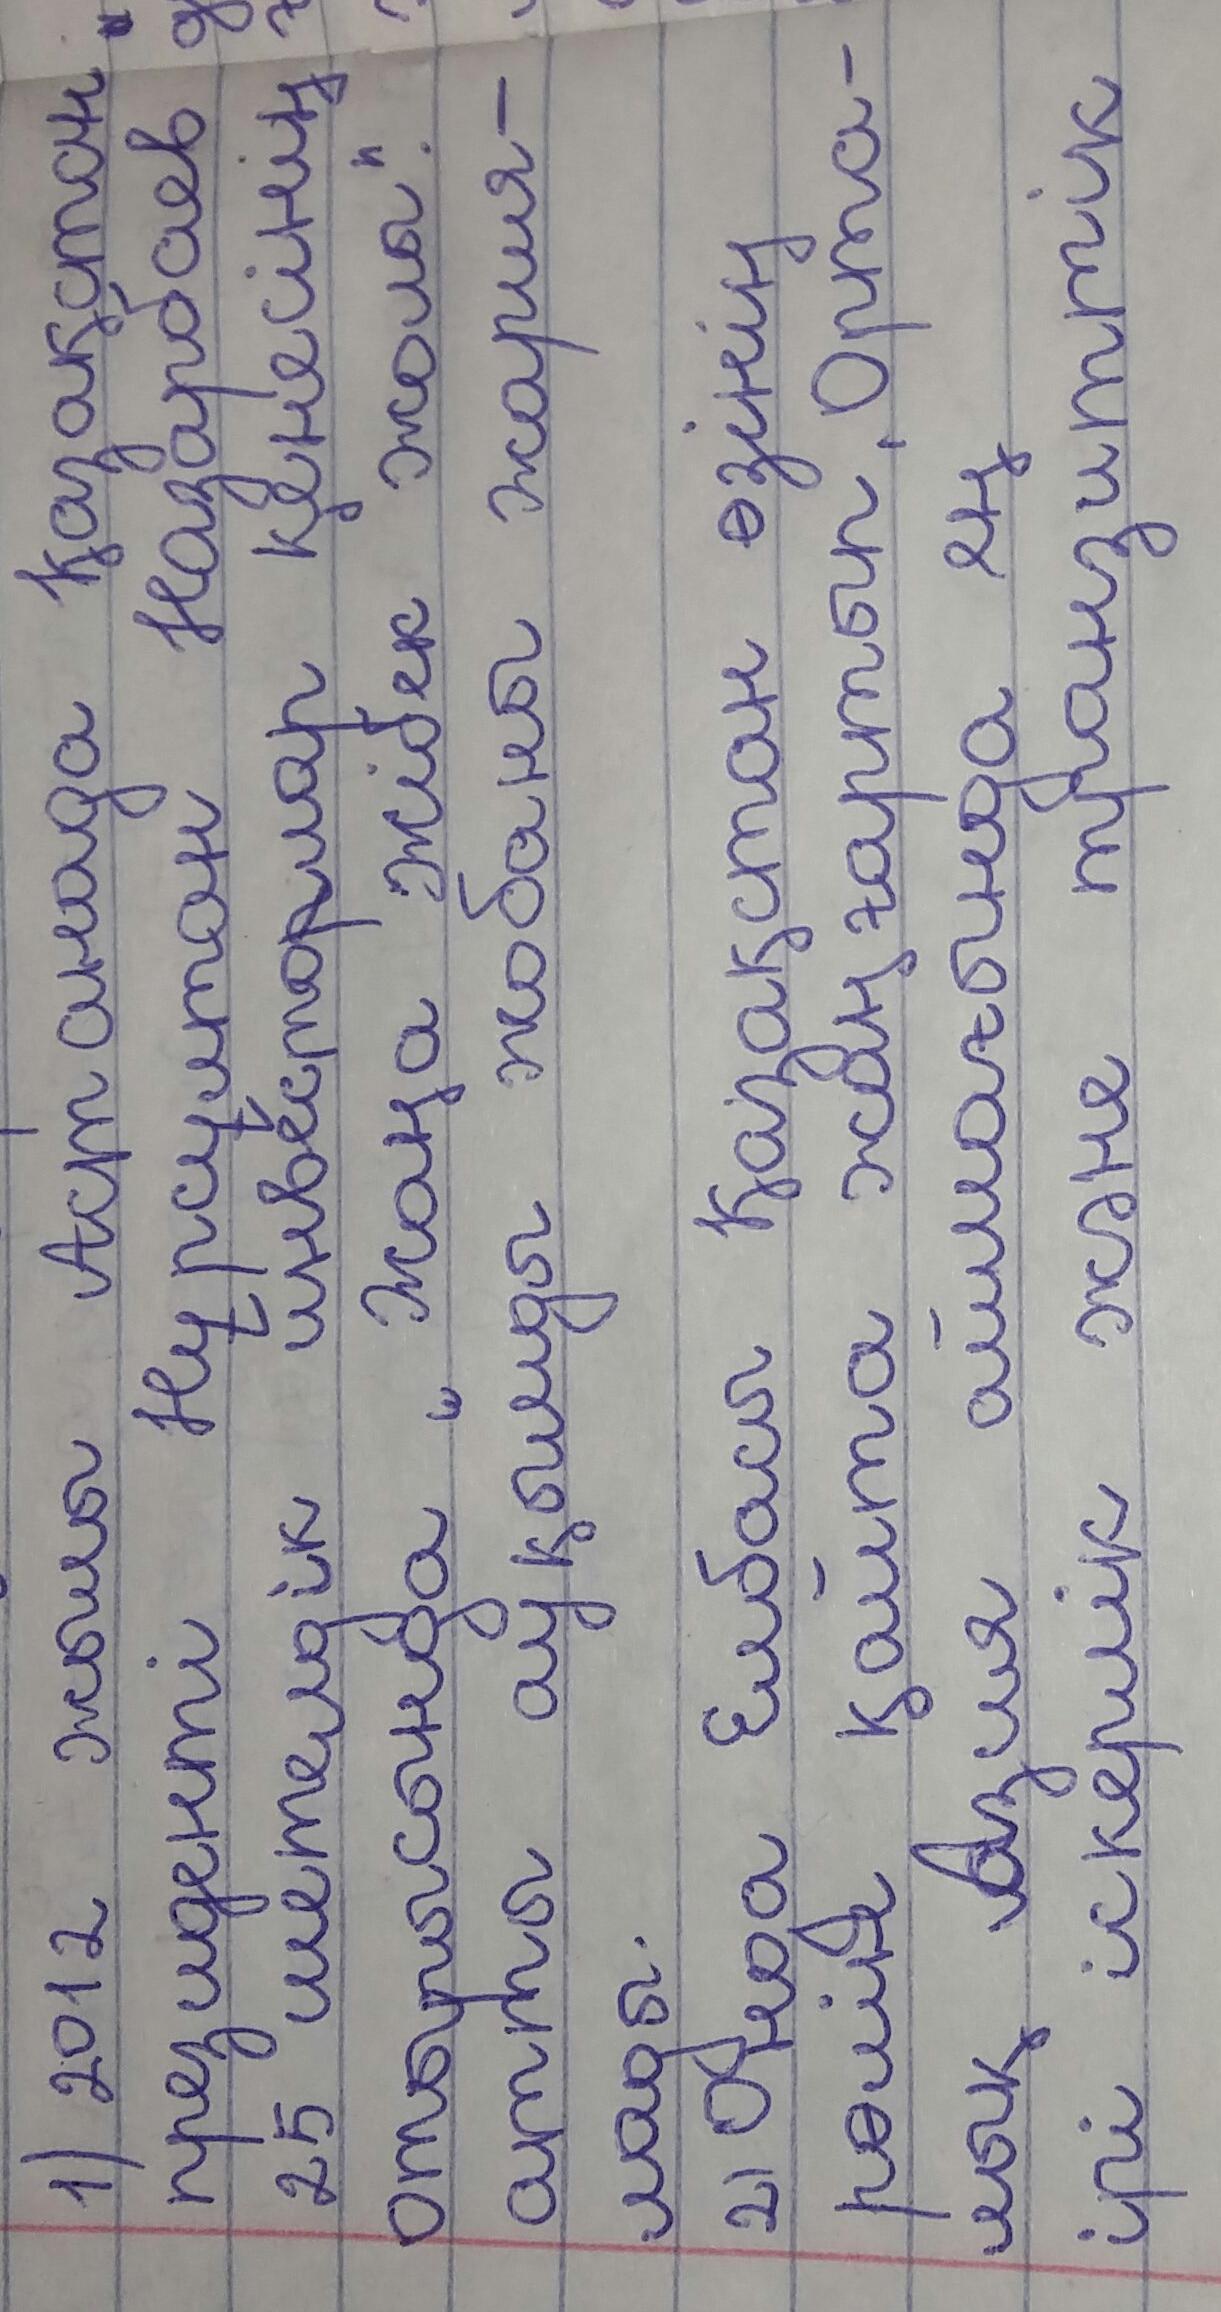 1) 2012 жылы Астанада Қазақстан
президенті Нұрсұлтан Назарбаев
25 шетелдік инвесторлар кеңесінің
отырысында "Жаңа жібек жолы".
атты ауқымды жобаны жария-
лады.
2) Онда Елбасы Қазақстан өзінің
рөлін қайта жаңғартып, Орта-
лық Азия аймағында ең
ірі іскерлік және транзиттік